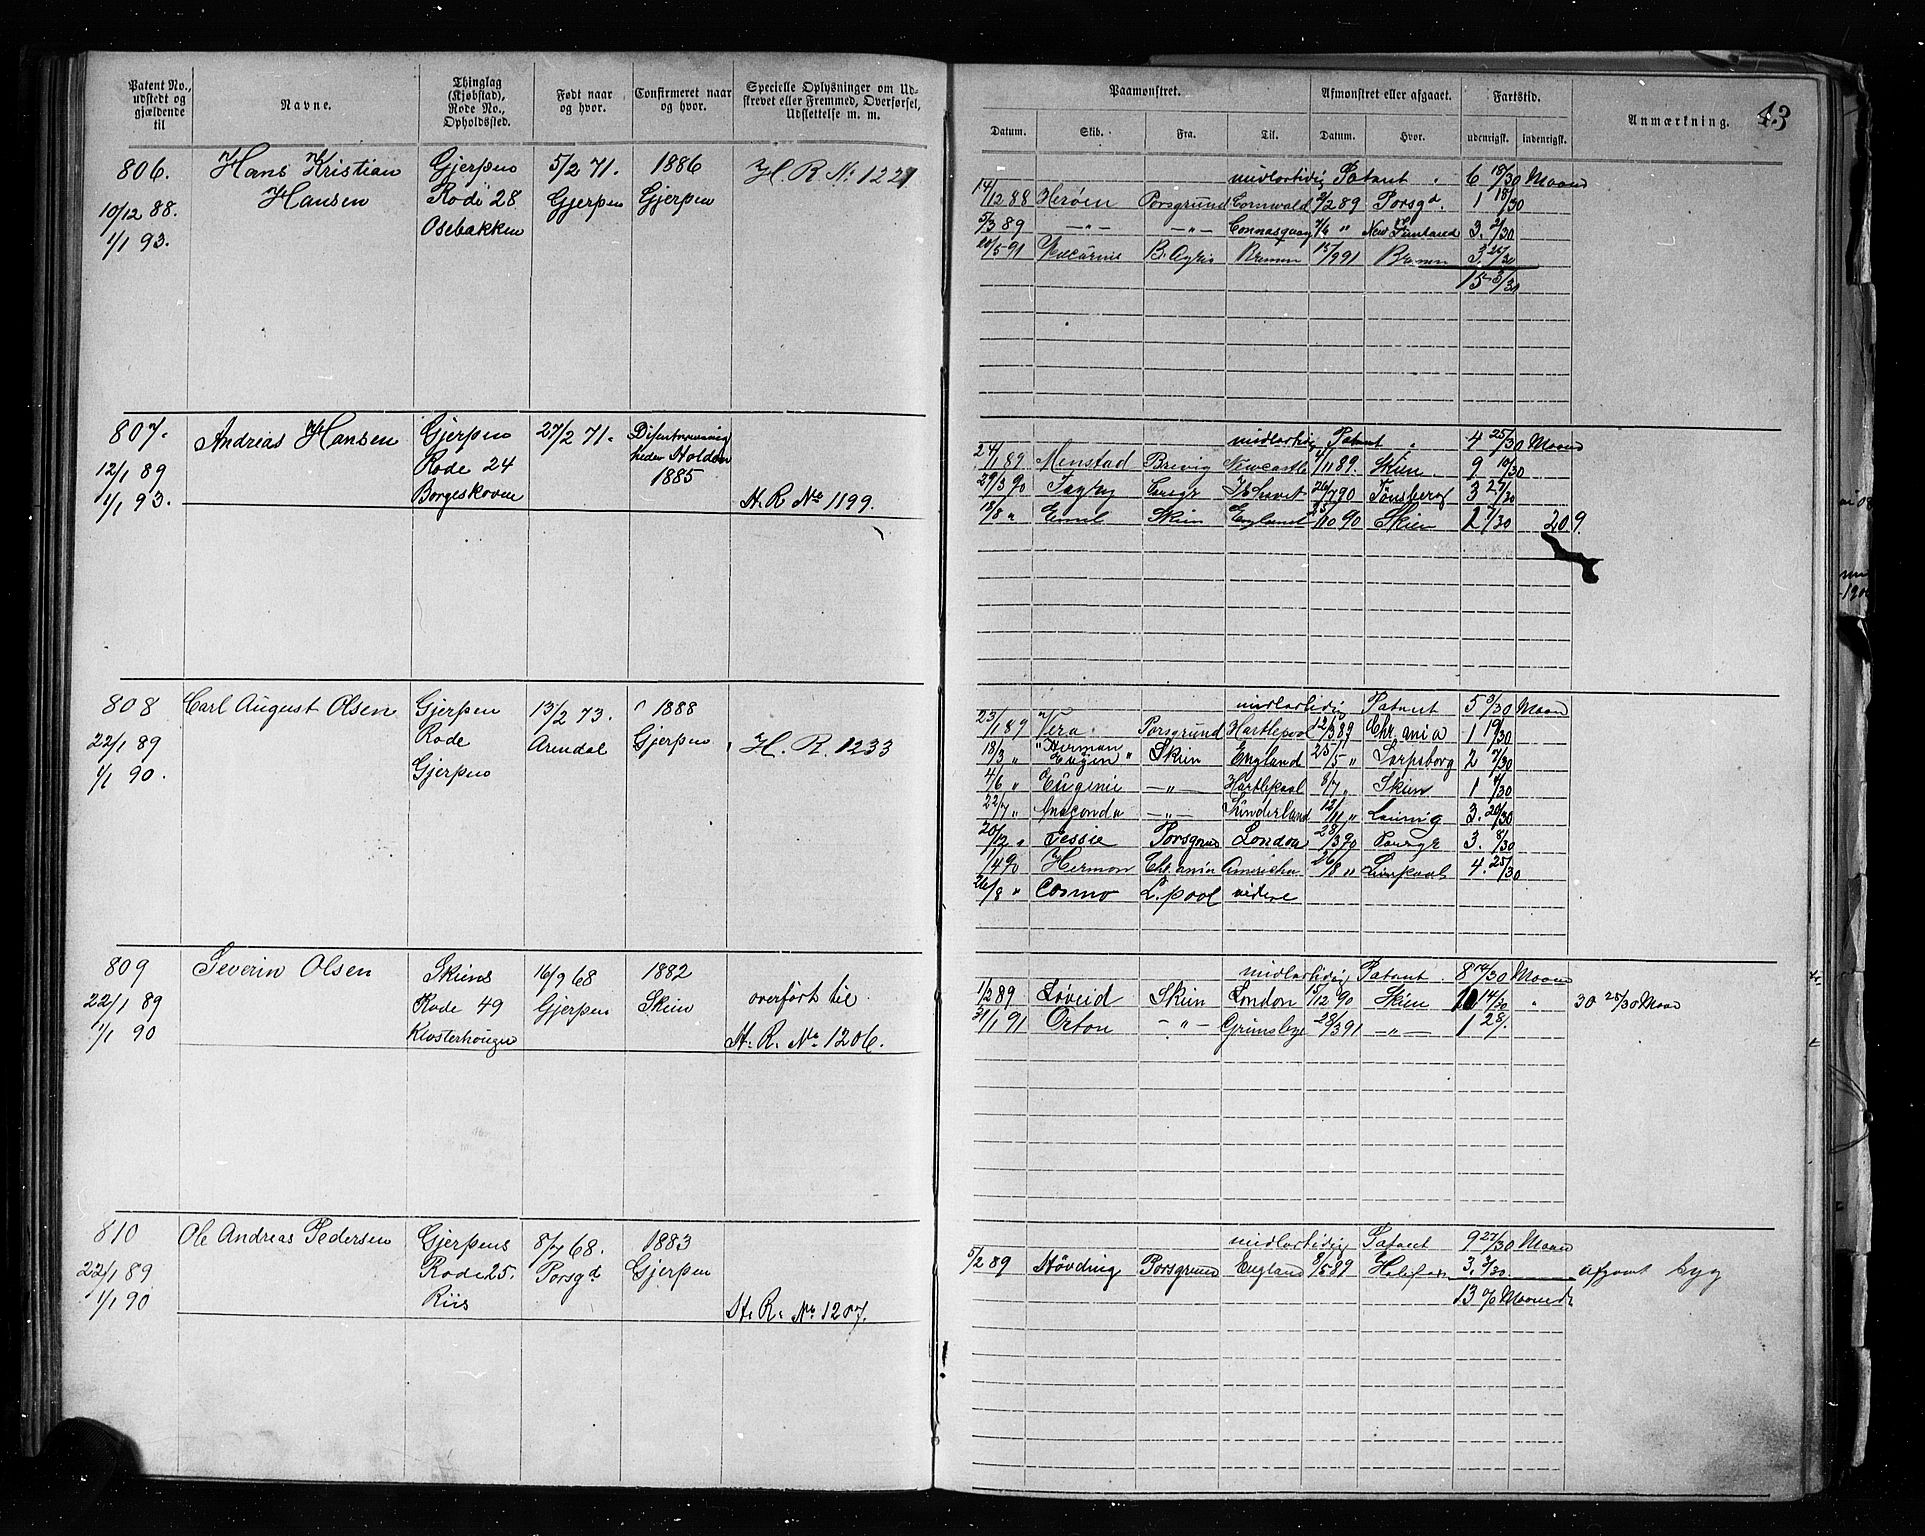 Patent No., udstedt og gjældende til
Navne.
Thinglag (Kjøbstad), Rode No., Opholdssted.
Født naar og hvor.
Confirmeret naar og hvor.
Specielle Oplysninger om Udskrevet eller Fremmed, Overførsel, Udslettelse m. m.
Paamønstret.
Afmønstret eller afgaaet.
Fartstid.
Anmærkning.
43
Datum. Skib. Fra. Til. Datum. Hvor. udenrigsk. indenrigsk.
806. Hans Kristian Gjerpens 5/2 71. 1886 H. R. No. 1221
10/12 88. Hansen Rode 28 Gjerpen Gjerpen
1/1 93. Osebakken
midlertidig Patent 6 19/30 Maaned
14/12 88 Herøen Porsgrund Cornwald 9/2 89 Porsgd. 1 18/30
5/3 89 —"— —"— 7/6 " New Funland 3. 2/30
B. Ayris Bremen 15/9 91 Bremen
15 3/30
807. Andreas Hansen Gjerpens 27/2 71.
12/1 89 Rode 24 Holden
1/1 93. Borgeskoven 1885 H. R. No 1199.
midlertidig Patent 4 25/30 Maaned
24/1 89 Menstad Brevig Newcastle 4/11 89. Skien 9 10/30
29/3 90 26/7 90 Tønsberg 3 27/30
18/8 " Emil Skien England 25/10 90 Skien 2 7/30 20 9.
808 Carl August Olsen Gjerpen 13/2 73. 1888
22/1 89 Rode Arendal Gjerpen H. R. 1233
1/1 90. Gjerpen
midlertidig Patent 5 9/30 Maan
23/1 89 Vera Porsgrund Hartlepool 12/3 89 Chr.ania 1 19/30
18/3 " "Herman Eugen" Skien England 25/5 " Sarpsborg 2 7/30
4/6 " Eugenie —"— Hartlepool 8/7 " Skien 1 4/30
22/7 " Anaconda —"— Sunderland 12/11 " 3. 20/30
20/12 " Jessie Porsgrund London 28/3 90 3. 8/30
1/4 90 Herman Chr.ania Amerika 4. 25/30
26/8 " Cosmo L.pool videre
809 Severin Olsen Skiens 16/9 68 1882
22/1 89 Rode 49 Gjerpen Skien overført til
1/1 90 Klosterhougen H. R. No 1206.
midlertidig Patent 8 14/30 Maaned
1/2 89 Løveid Skien London 15/12 90 Skien 14/30 " 30 25/30 Maan
31/1 91 Orton —"— Grimsbye 28/3 91 —"— 1 28/.
810 Ole Andreas Pedersen Gjerpens 8/7 68. 1883
22/1 89 Rode 25. Porsgd Gjerpen
1/1 90 Riis H. R. No 1207.
midlertidig Patent 9 27/30 Maaned
5/2 89 Høvding Porsgrund England 8/5 89 Halifax 3. 3/30 afgaaet syg
13 Maaned